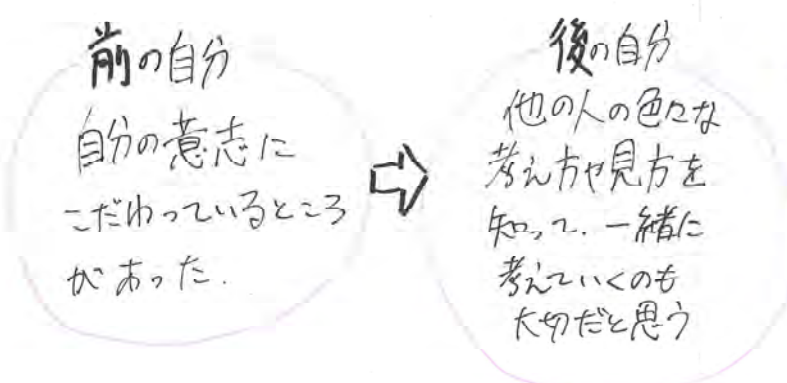 前の自分
自分の意志に
こだわっているところ
があった.
後の自分
他の人の色々な
考え方や見方を
知って、一緒に
考えていくのも
大切だと思う